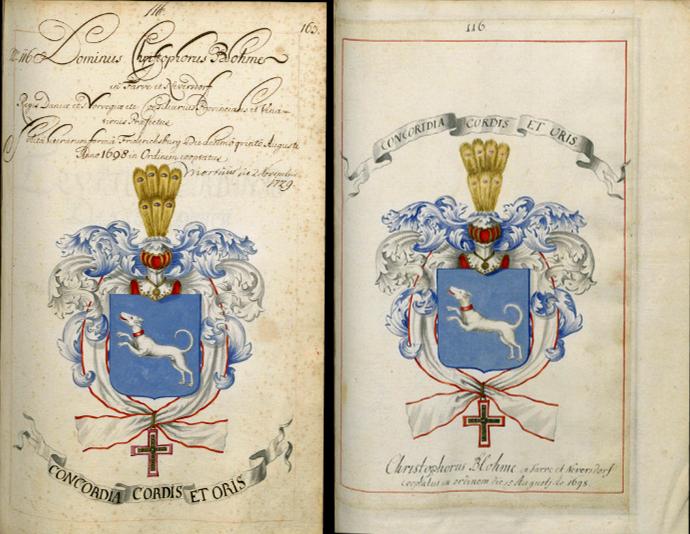 116.
163.
No 116 Dominus Christophorus Blohme
in Farve et Neversdorf
Regis Daniæ et Norvegiæ etc Consiliarius Provincialis et Vena-
tionis Præfectus
Solita hierarum forma Friderichsburg Die decimo qvinto Augusti
Anno 1698 in Ordinem cooptatus
Mortuus die 2 Novembris
1729.
CONCORDIA CORDIS ET ORIS
116
CONCORIDIA CORDIS ET ORIS
Christophorus Blohme in Farve et Neversdorf
Cooptatus in ordinem die 15 Augusti Ao 1698.